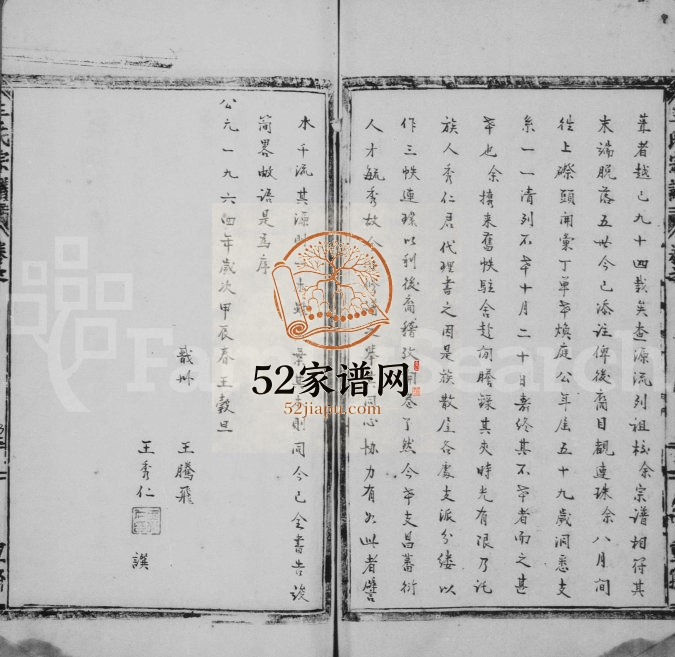 葺者越已九十四载矣查源流列祖校余宗谱相符其
末端脱落五世今已添注俾後裔目觀連珠余八月间
徃上磜頭開彙丁單幸煥庭公年届五十九歲洞悉支
系一一清列不幸十月二十日壽终其不幸者而之甚
幸也余接来舊帙駐舍赴间謄錄其夾時光有限乃託
族人秀仁君代理書之因是族散居各處支派分缕以
作三帙連環以利後裔稽攷同卷了然今幸支昌蕃衍
人才毓秀故同心协力有如此者譬
水千流其源则同今已全書告竣
简畧敝语是為序
公元一九六四年歲次甲辰春王穀旦
王騰飛
王秀仁
譔
王氏宗譜
FamilySearch
52家谱网
52jiapu.com